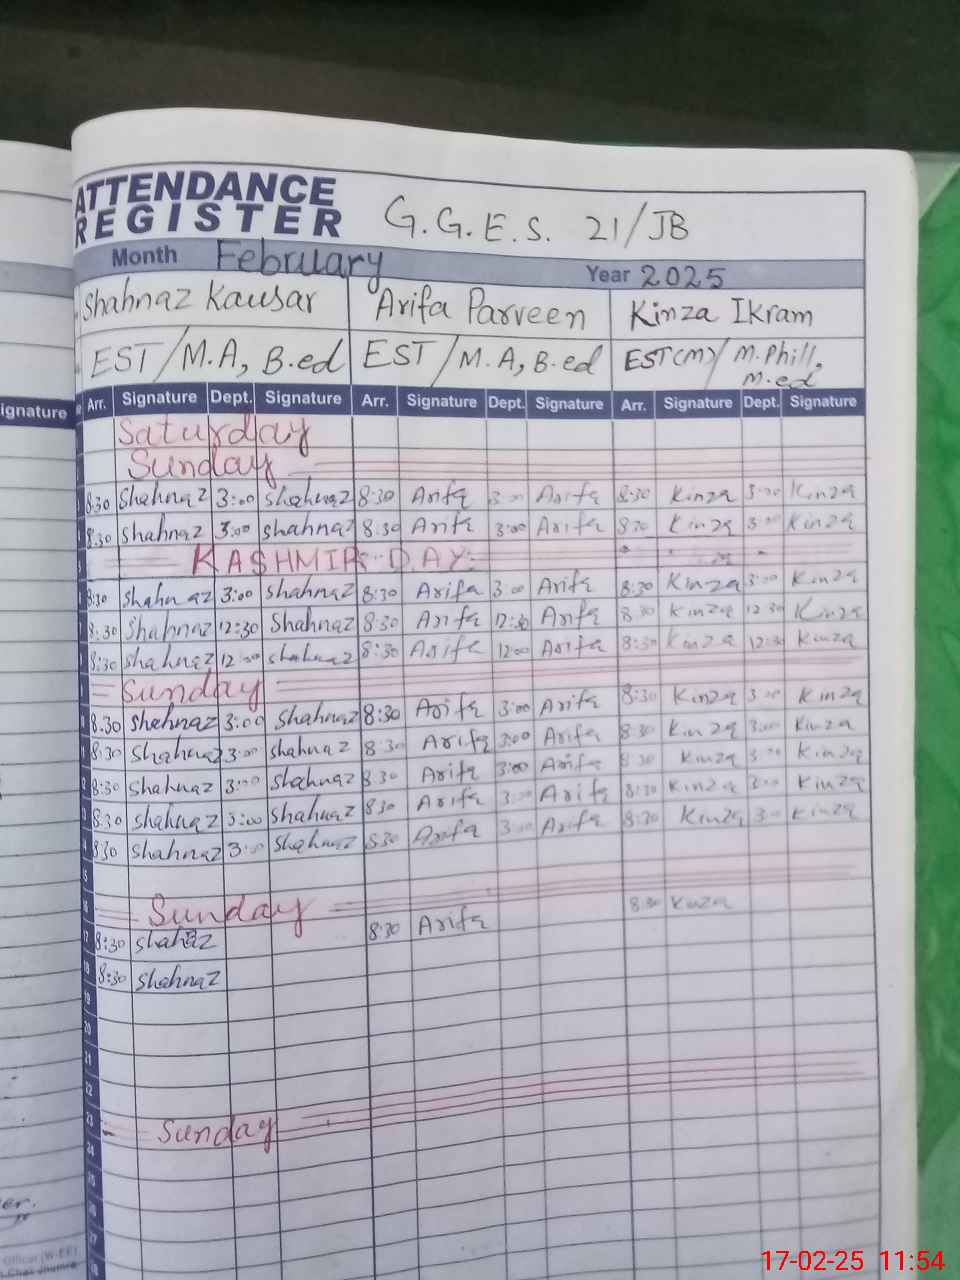 ATTENDANCE
REGISTER G.G.E.S. 21/JB
Month February Year 2025
Shahnaz Kausar Arifa Parveen Kinza Ikram
EST/M.A, B.ed EST/M.A, B.ed EST(M)/M.Phill, M.ed
ignature Arr. Signature Dept. Signature Arr. Signature Dept. Signature Arr. Signature Dept. Signature
Saturday
Sunday
8:30 Shahnaz 3:00 Shahnaz 8:30 Arifa 3:00 Arifa 8:30 Kinza 3:00 Kinza
8:30 Shahnaz 3:00 Shahnaz 8:30 Arifa 3:00 Arifa 830 Kinza 3:00 Kinza
KASHMIR DAY:
8:30 Shahnaz 3:00 Shahnaz 8:30 Arifa 3:00 Arifa 8:30 Kinza 3:00 Kinza
8:30 Shahnaz 12:30 Shahnaz 8:30 Arifa 12:30 Arifa 8:30 Kinza 12:30 Kinza
8:30 Shahnaz 12:00 Shahnaz 8:30 Arifa 1200 Arifa 8:30 Kinza Kinza
Sunday
8:30 Shahnaz 3:00 Shahnaz 8:30 Arifa 3:00 Arifa 8:30 Kinza 3:00 Kinza
11 8:30 Shahnaz 3:00 Shahnaz 8:30 Arifa 3:00 Arifa 8:30 Kinza 3:00 Kinza
12 8:30 Shahnaz 3:00 Shahnaz 8:30 Arifa 3:00 Arifa 8:30 Kinza 3:00 Kinza
13 8:30 Shahnaz 3:00 Shahnaz 830 Arifa 3:00 Arifa 8:30 Kinza 3:00 Kinza
14 830 Shahnaz 3:00 Shahnaz 830 Arifa 3:00 Arifa 8:30 Kinza 3:00 Kinza
15
16 Sunday
17 8:30 Shahaz 8:30 Arifa 8:30 Kinza
18 8:30 Shahnaz
19
20
21
22
23 Sunday
24
25
26
27
28
17-02-25 11:54